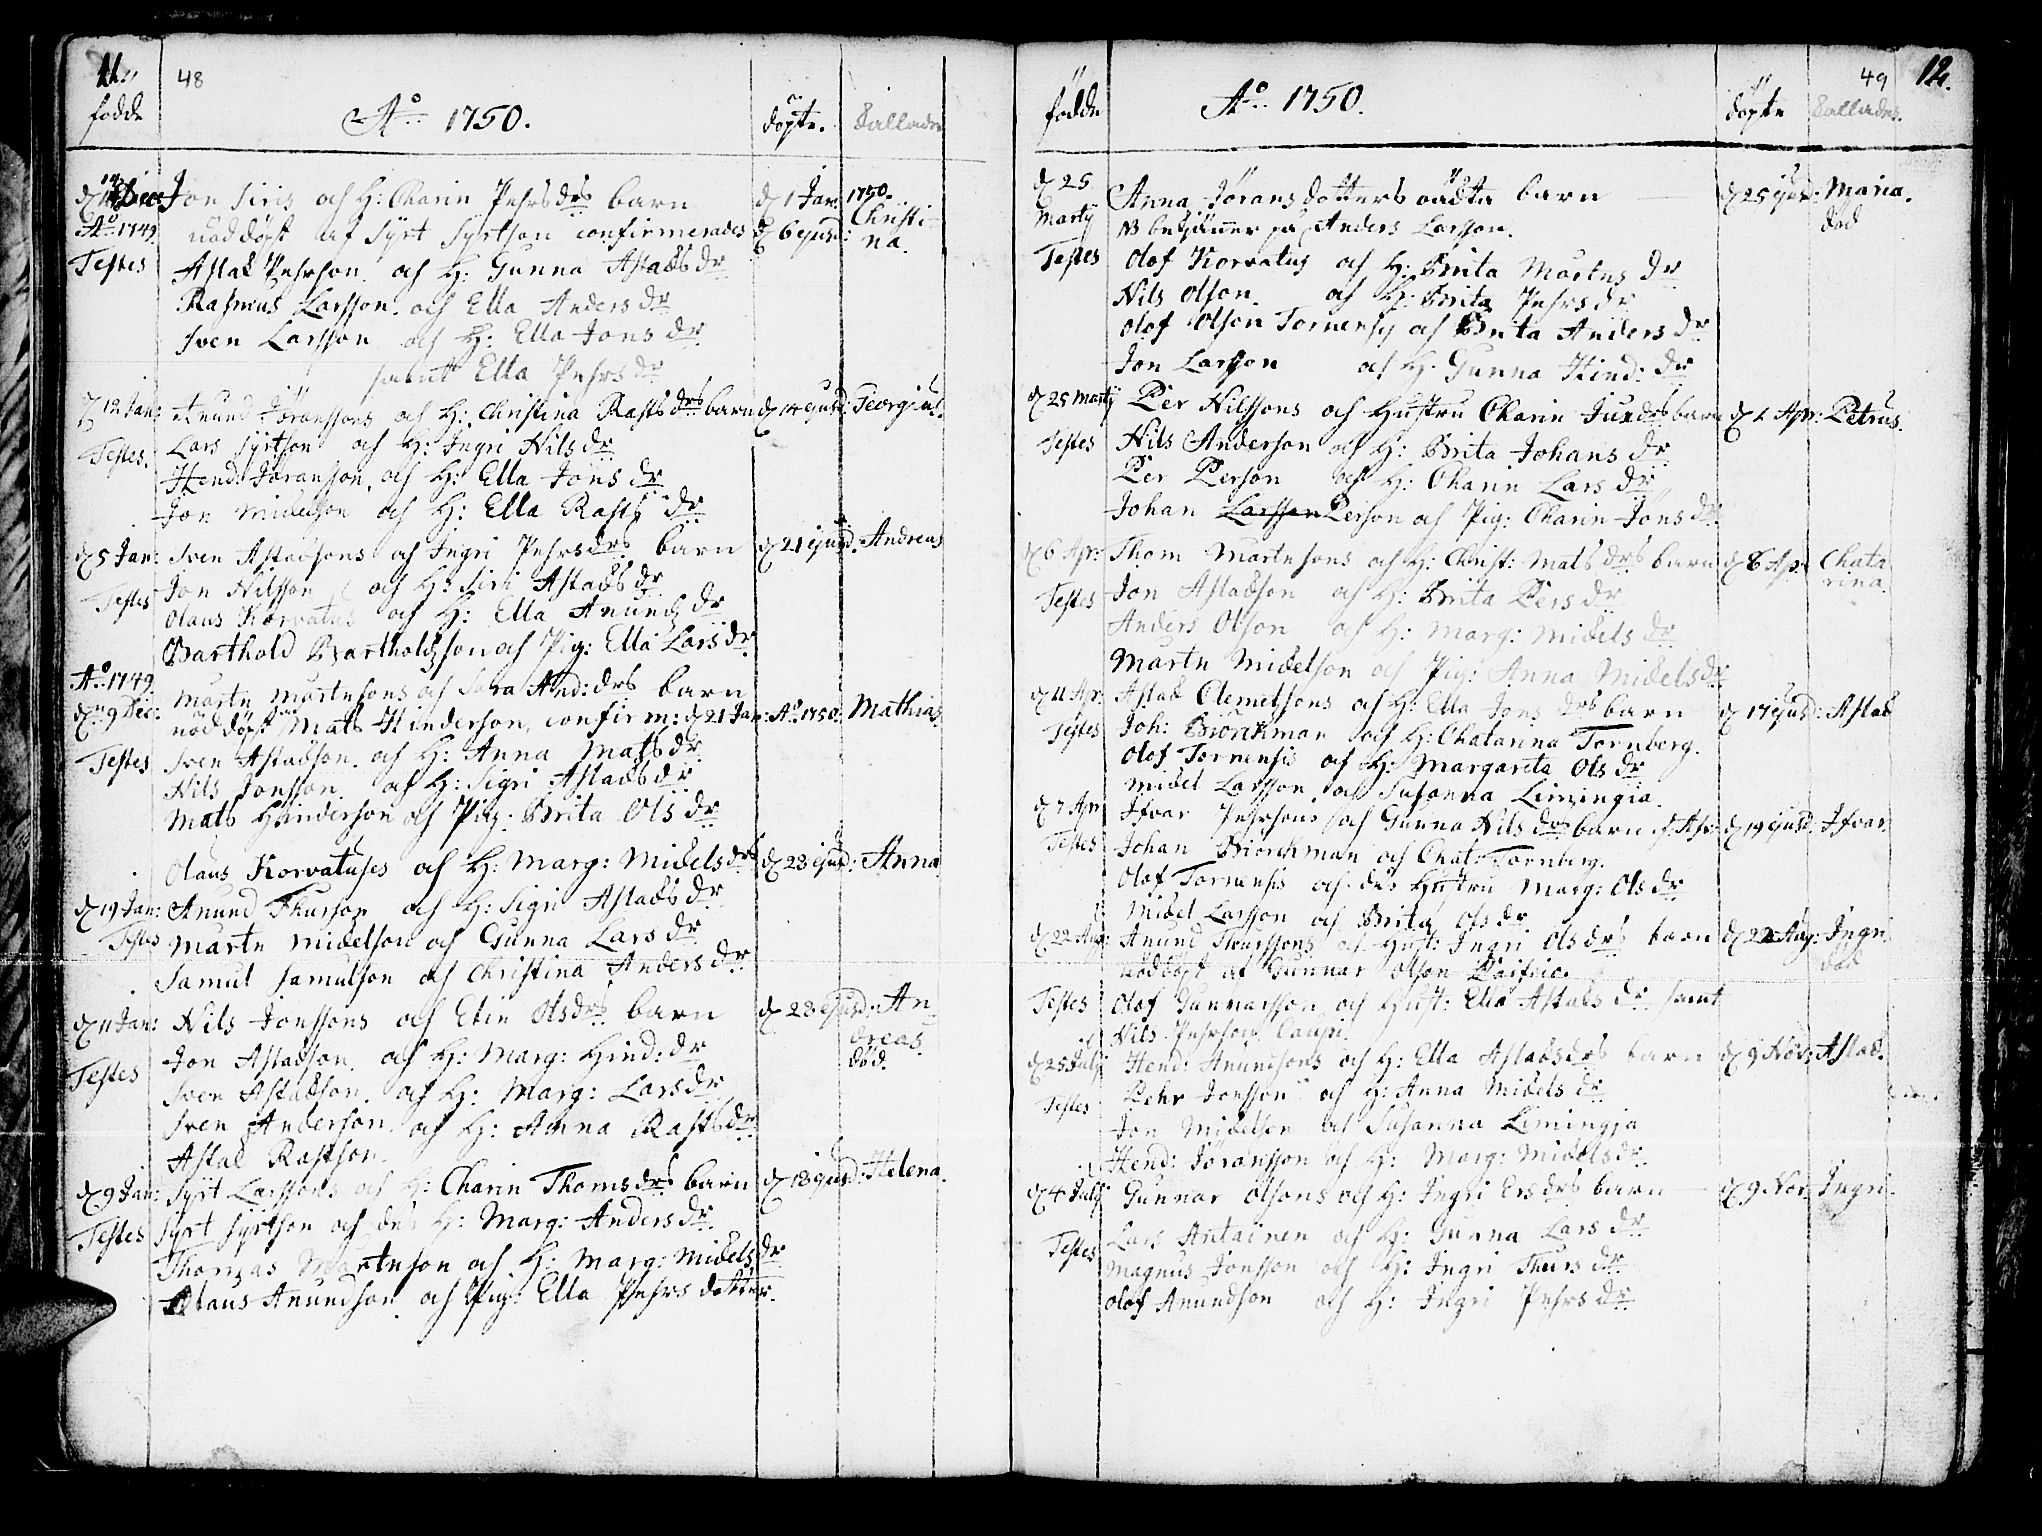 11.
48
födde
Ao 1750.
döpte.
Kallades
d 14 Dec Jon Siris och H: Charin Pehrs drs barn d 1 Jan: 1750.
Ao 1749. nöddöpt af Syrt Syrtson confirmerades d 6 ejusd: Christi-
na.
Testes Aslak Pehrson och H: Gunna Aslaks dr
Rasmus Larsson och Ella Anders dr
Sven Larsson och H: Ella Jons dr
samt Ella Pehrs dr
d 12 Jan: Anund Jöranssons och H: Christina Rasts drs barn d 14 ejusd: Georgius.
Testes. Lars Syrtson och H: Ingri Nils dr
Hend: Joranson och H: Ella Jons dr
Jon Mickelson och H: Ella Rasts dr
d 5 Jan: Sven Aslacksons och Ingri Pehrs drs barn d 21 ejusd. Andreas
Testes Jon Nilsson och H: Siri Aslaks dr
Olaus Korvatus och H: Ella Anunds dr
Barthold Bartholdsson och Pig: Ella Lars dr
Ao 1749. Mårtn Mårtnsons och Sara And: drs barn
d 9 Dec: nöddöpt Mats Hinderson, confirm: d 21 Jan: Ao 1750. Mathias
Testes Sven Aslackson och H: Anna Mats dr
Nils Jonsson och H: Sigri Aslacks dr
Mats Hinderson och Pig: Brita Ols dr
Olaus Korvatuses och H: Marg: Mickels drs d 28 ejusd: Anna
d 19 Jan: Anund Thurson och H: Sigri Aslacks dr
Testes Mårtn Mickelson och Gunna Lars dr
Samul Samulson och Christina Anders dr
d 11 Jan: Nils Jonssons och Elin Ols drs barn d 28 ejusd: An-
dreas.
död.
Testes Jon Aslackson och H: Marg: Hind: dr
Sven Aslackson och H: Marg: Lars dr
Sven Anderson och H: Anna Rasts dr
Aslak Rastson
d 9 Jan: Syrt Larssons och H: Charin Thoms drs barn d 18 ejusd: Helena.
Testes Syrt Syrtson och des H: Marg: Anders dr
Thomas Mårtnson och H: Marg: Mickels dr
Olaus Anundson och Pig: Ella Pehrs dotter.
49
12.
födde
Ao 1750.
döpte
Kallades.
d 25 Anna Jörans dotters oächta barn d 25 ejusd: Maria.
Martij NB bekänner på Anders Larsson. död
Testes Olof Korvatus och H: Brita Mårtns dr
Nils Olson och H: Brita Pehrs dr
Olof Olson Tornensis och Brita Anders dr
Jon Larsson och H: Gunna Hind: dr
d 25 Martij Per Nilssons och Hustru Charin Juxdrs barn d 1 Apr: Petrus.
Testes Nils Anderson och H: Brita Johans dr
Per Person och H: Charin Lars dr
Johan Larsson Person och Pig: Charin Jöns dr
d 6 Apr: Thom Mårtnsons och H: Christ: Mats drs barn d 8 Apr: Chata
rina.
Testes Jon Aslackson och H: Brita Pers dr
Anders Olson och H: Marg: Mickels dr
Mårtn Mickelson och Pig: Anna Mickels dr
d 11 Apr. Aslak Clemetsons och H: Ella Jons drs barn d 17 ejusd: Aslak
Testes Joh: Biörckman och H: Chatarina Tornberg.
Olof Tornensis och H: Margareta Ols dr
Mickel Larsson och Susanna Limingia.
d 7 Apr Ifvar Pehrsons och Gunna Nils drs barn d 19 ejusd: Ifvar.
Testes Johan Biörckman och Chat: Tornberg.
Olof Tornensis och des Hustru Marg: Ols dr
Mickel Larsson och Brita Ols dr
d 22 Aug: Anund Thurssons och Hust: Ingri Ols drs barn d 22 Aug: Ingri
nöddöpt af Gunnar Olson död
Testes Olof Gunnarsson och Hust: Ella Aslaks dr samt
Nils Pehrson
d 25 Julij Hend: Anundsons och H: Ella Aslacks drs barn d 9 Nov: Aslak.
Testes Pehr Jonsson och H: Anna Mickels dr
Jon Mickelson och Susanna Limingia
Hend: Joransson och H: Marg: Mickels dr
d 4 Julij Gunnar Olsons och H: Ingri Ers drs barn d 9 Nov. Ingri.
Testes Lars Antainen och H: Gunna Lars dr
Magnus Jonsson och H: Ingri Thurs dr
Olof Anundson och H: Ingri Pehrs dr